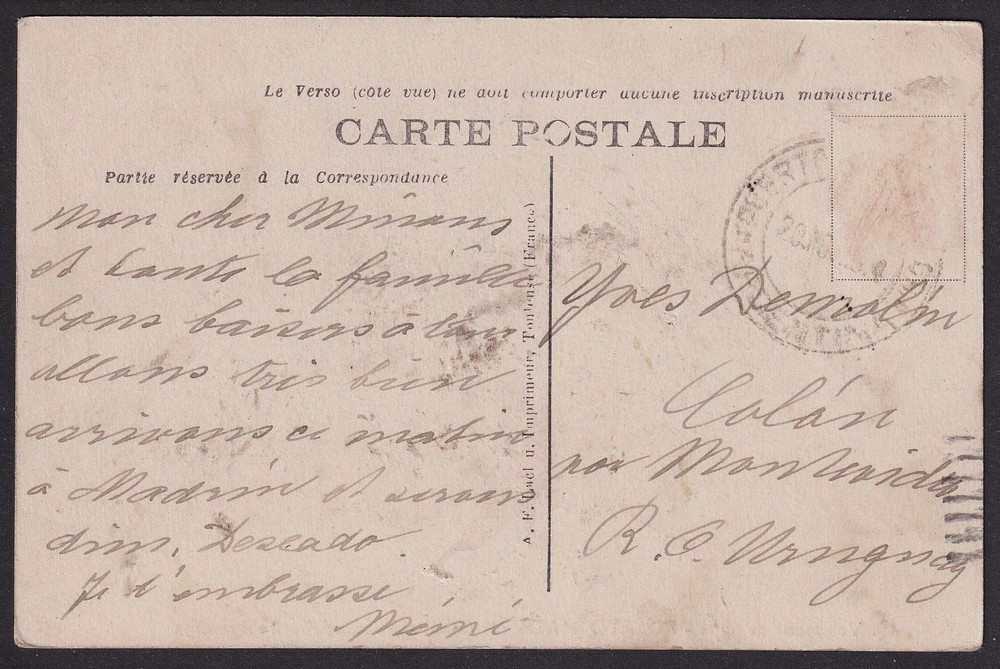 Le Verso (côté vue) ne doit comporter aucune inscription manuscrite
CARTE POSTALE
Partie réservée à la Correspondance
mon cher Minans
et toute la famille
bons baisers à tous
allons très bien
arrivons ce matin
à Madrin et serons
dim. Deseado.
Je t'embrasse
Mémé
A. F. Imprimeur, Toulouse (France)
PUERTO
Yves Demolin
Colón
por Montevideo
R. O. Uruguay